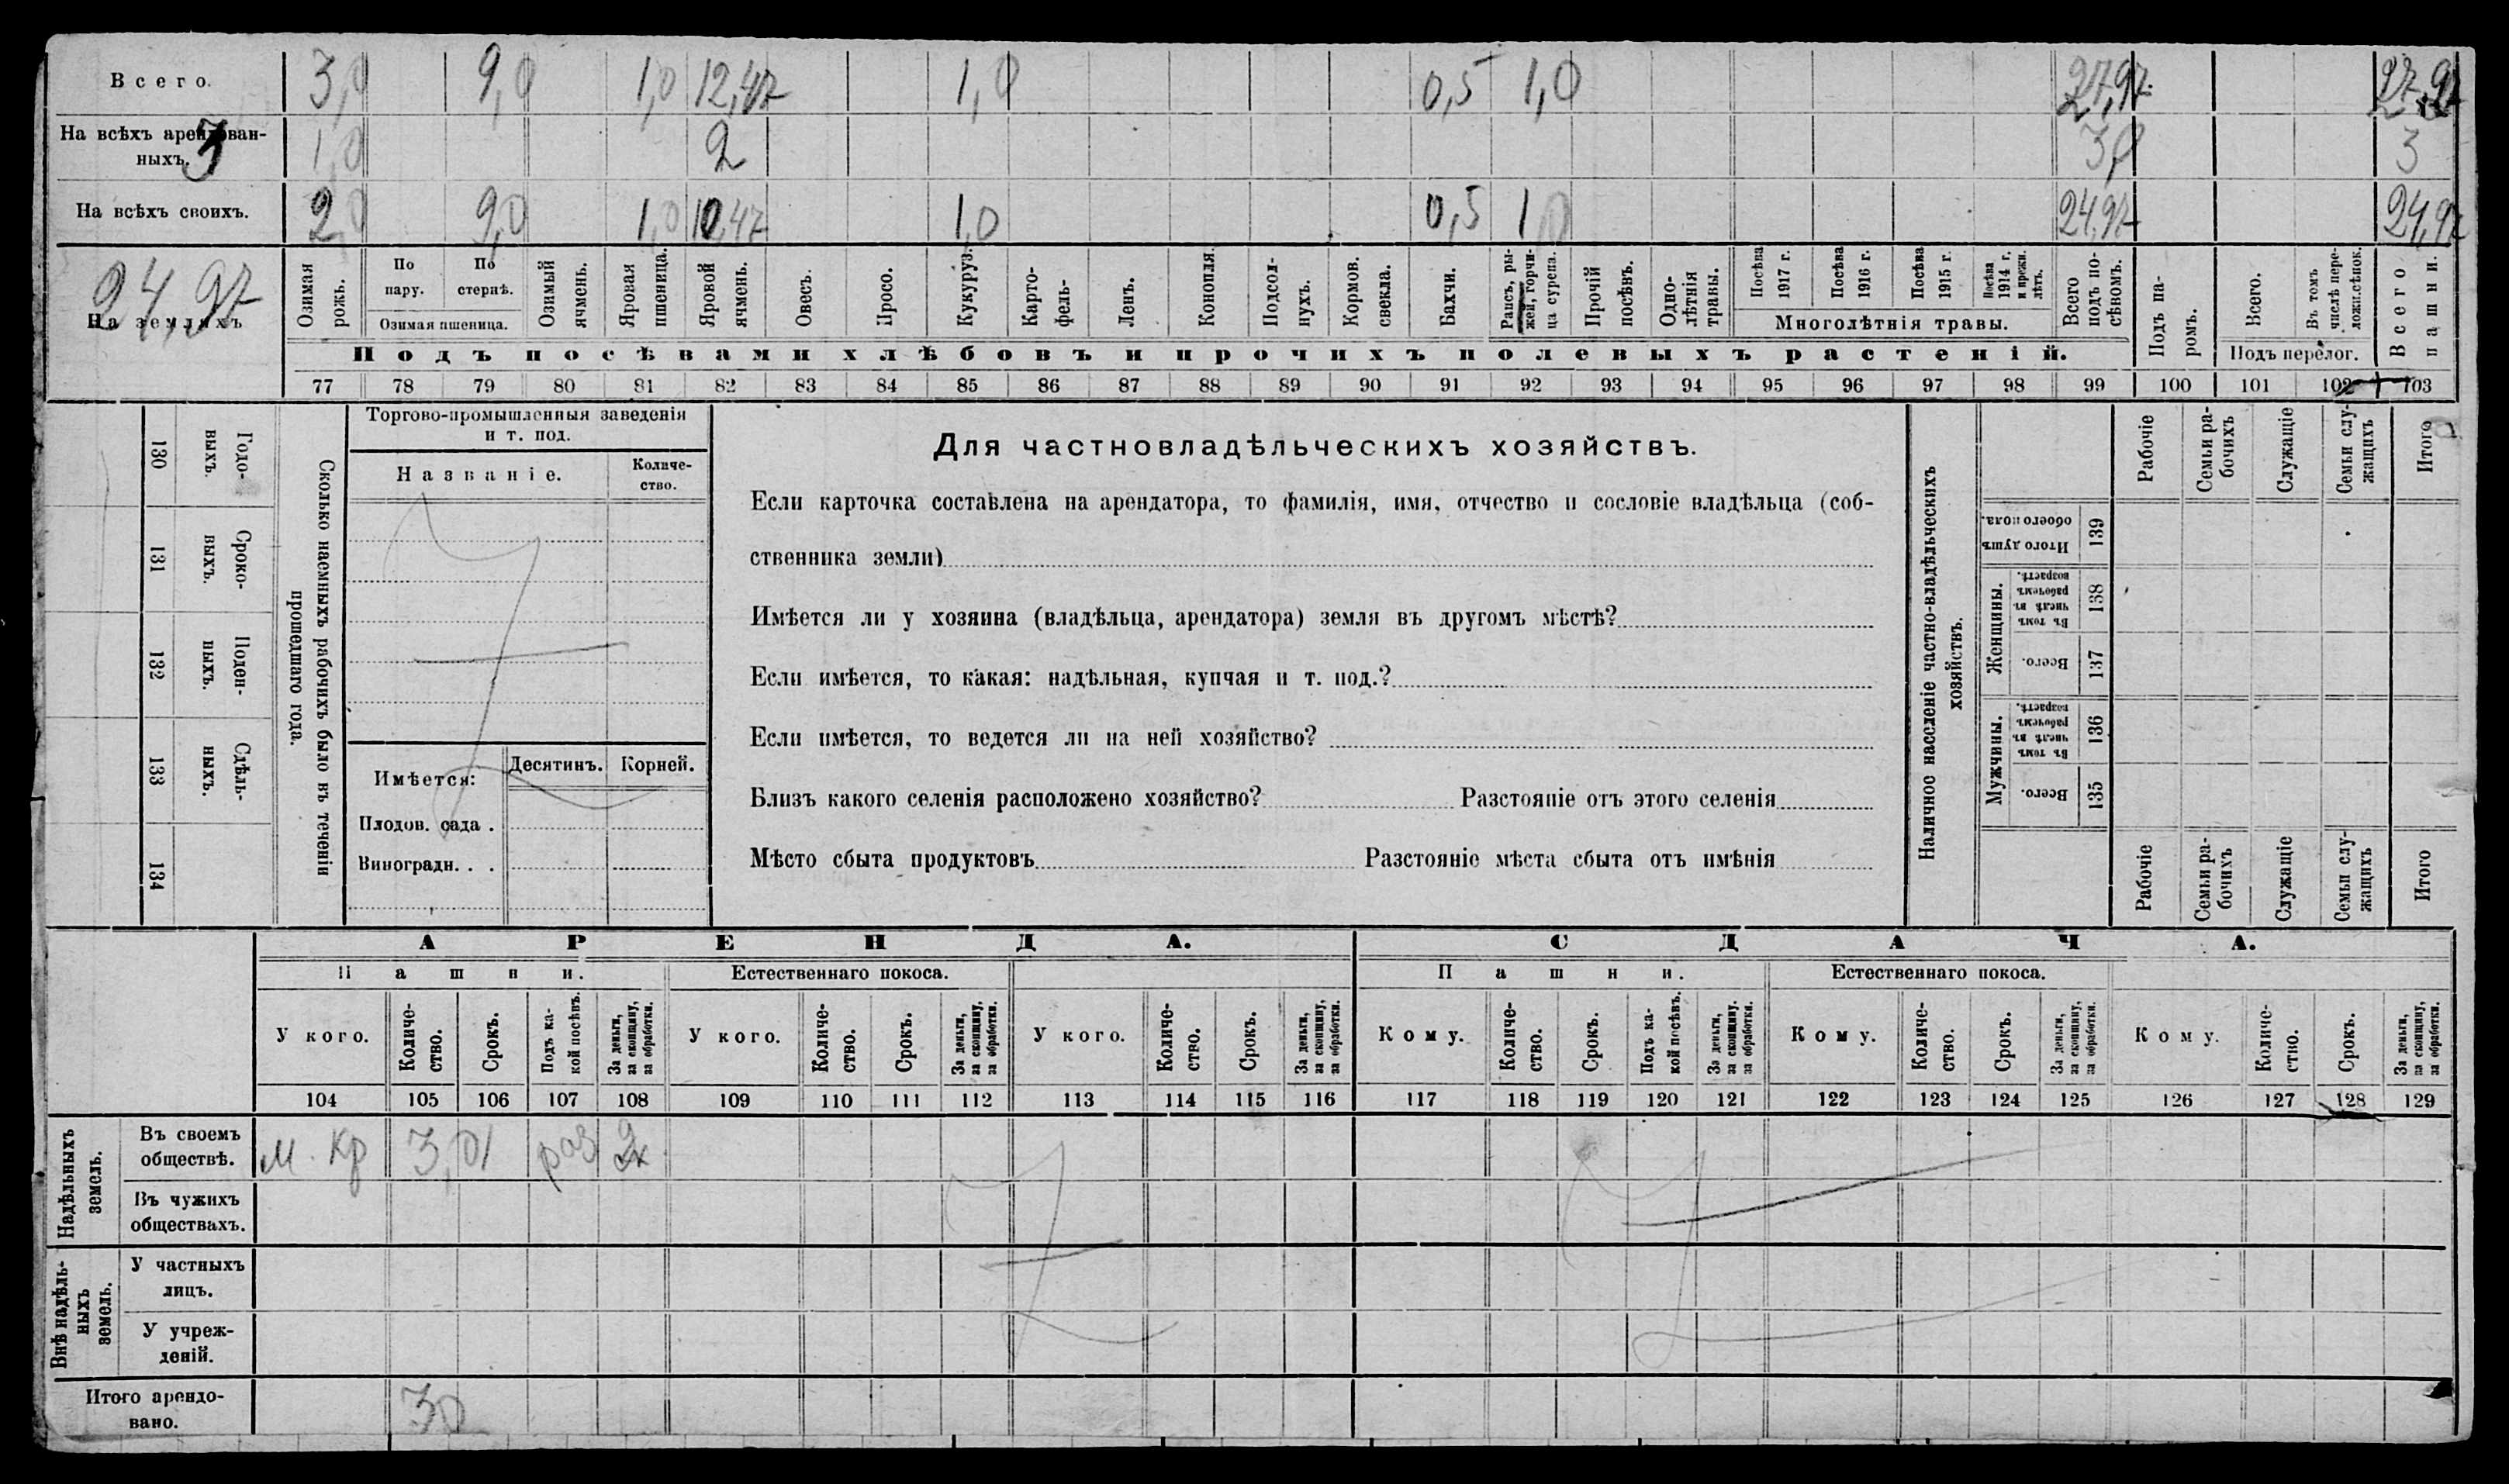 Всего. 3,0 9,0 1,0 12,47 1,0 0,5 1,0 27,97 27,97
На всѣхъ арендован-
ныхъ. 3 1,0 2 3,0 3
На всѣхъ своихъ. 2,0 9,0 1,0 10,47 1,0 0,5 1,0 24,97 24,97
24,97
На земляхъ
Озимая рожь.
По пару.
По стернѣ.
Озимая пшеница.
Озимый ячмень.
Яровая пшеница.
Яровой ячмень.
Овесъ.
Просо.
Кукуруз.
Карто-
фель.
Ленъ.
Конопля.
Подсол-
нухъ.
Кормов. свекла.
Бахчи.
Рапсъ, ры-
жей, горчи-
ца сурепа.
Прочій посѣвъ.
Одно-
лѣтнія
травы.
Посѣва 1917 г.
Посѣва 1916 г.
Посѣва 1915 г.
Посѣва 1914 г. и прежн. лѣтъ.
Многолѣтнія травы.
Всего подъ по-
сѣвомъ.
Подъ па-
ромъ.
Всего.
Въ томъ числѣ пере-
ложн. сѣнок.
Подъ перелог.
Всего пашни.
Подъ посѣвами хлѣбовъ и прочихъ полевыхъ растеній.
77 78 79 80 81 82 83 84 85 86 87 88 89 90 91 92 93 94 95 96 97 98 99 100 101 102 103
Сколько наемныхъ рабочихъ было въ теченіи
прошедшаго года.
Годо-
выхъ.
130
Сроко-
выхъ.
131
Поден-
ныхъ.
132
Сдѣль-
ныхъ.
133
134
Торгово-промышленныя заведенія
и т. под.
Названіе.
Количе-
ство.
Имѣется:
Десятинъ. Корней.
Плодов. сада .
Виноградн. . .
Для частновладѣльческихъ хозяйствъ.
Если карточка составлена на арендатора, то фамилія, имя, отчество и сословіе владѣльца (соб-
ственника земли)
Имѣется ли у хозяина (владѣльца, арендатора) земля въ другомъ мѣстѣ?
Если имѣется, то какая: надѣльная, купчая и т. под.?
Если имѣется, то ведется ли на ней хозяйство?
Близъ какого селенія расположено хозяйство? Разстояніе отъ этого селенія
Мѣсто сбыта продуктовъ Разстояніе мѣста сбыта отъ имѣнія
Наличное населеніе частно-владѣльческихъ
хозяйствъ.
Рабочіе
Семьи ра-
бочихъ
Служащіе
Семьи слу-
жащихъ
Итого
Итого душъ обоего пола.
139
Женщины.
Въ томъ числѣ въ рабочемъ возрастѣ.
138
Всего.
137
Мужчины.
Въ томъ числѣ въ рабочемъ возрастѣ.
136
Всего.
135
Рабочіе
Семьи ра-
бочихъ
Служащіе
Семьи слу-
жащихъ
Итого
АРЕНДА. СДАЧА.
Пашни. Естественнаго покоса. Пашни. Естественнаго покоса.
У кого.
Количе-
ство.
Срокъ.
Подъ ка-
кой посѣвъ.
За деньги,
за скопщину,
за обработки.
У кого.
Количе-
ство.
Срокъ.
За деньги,
за скопщину,
за обработки.
У кого.
Количе-
ство.
Срокъ.
За деньги,
за скопщину,
за обработки.
Кому.
Количе-
ство.
Срокъ.
Подъ ка-
кой посѣвъ.
За деньги,
за скопщину.
за обработки.
Кому.
Количе-
ство.
Срокъ.
За деньги,
за скопщину,
за обработки.
Кому.
Количе-
ство.
Срокъ.
За деньги,
за скопщину,
за обработки.
104 105 106 107 108 109 110 111 112 113 114 115 116 117 118 119 120 121 122 123 124 125 126 127 128 129
Надѣльныхъ
земель.
Въ своемъ
обществѣ.
м. кр 3,0 1 раз
Въ чужихъ
обществахъ.
Внѣ надѣль-
ныхъ
земель.
У частныхъ
лицъ.
У учреж-
деній.
Итого арендо-
вано. 30